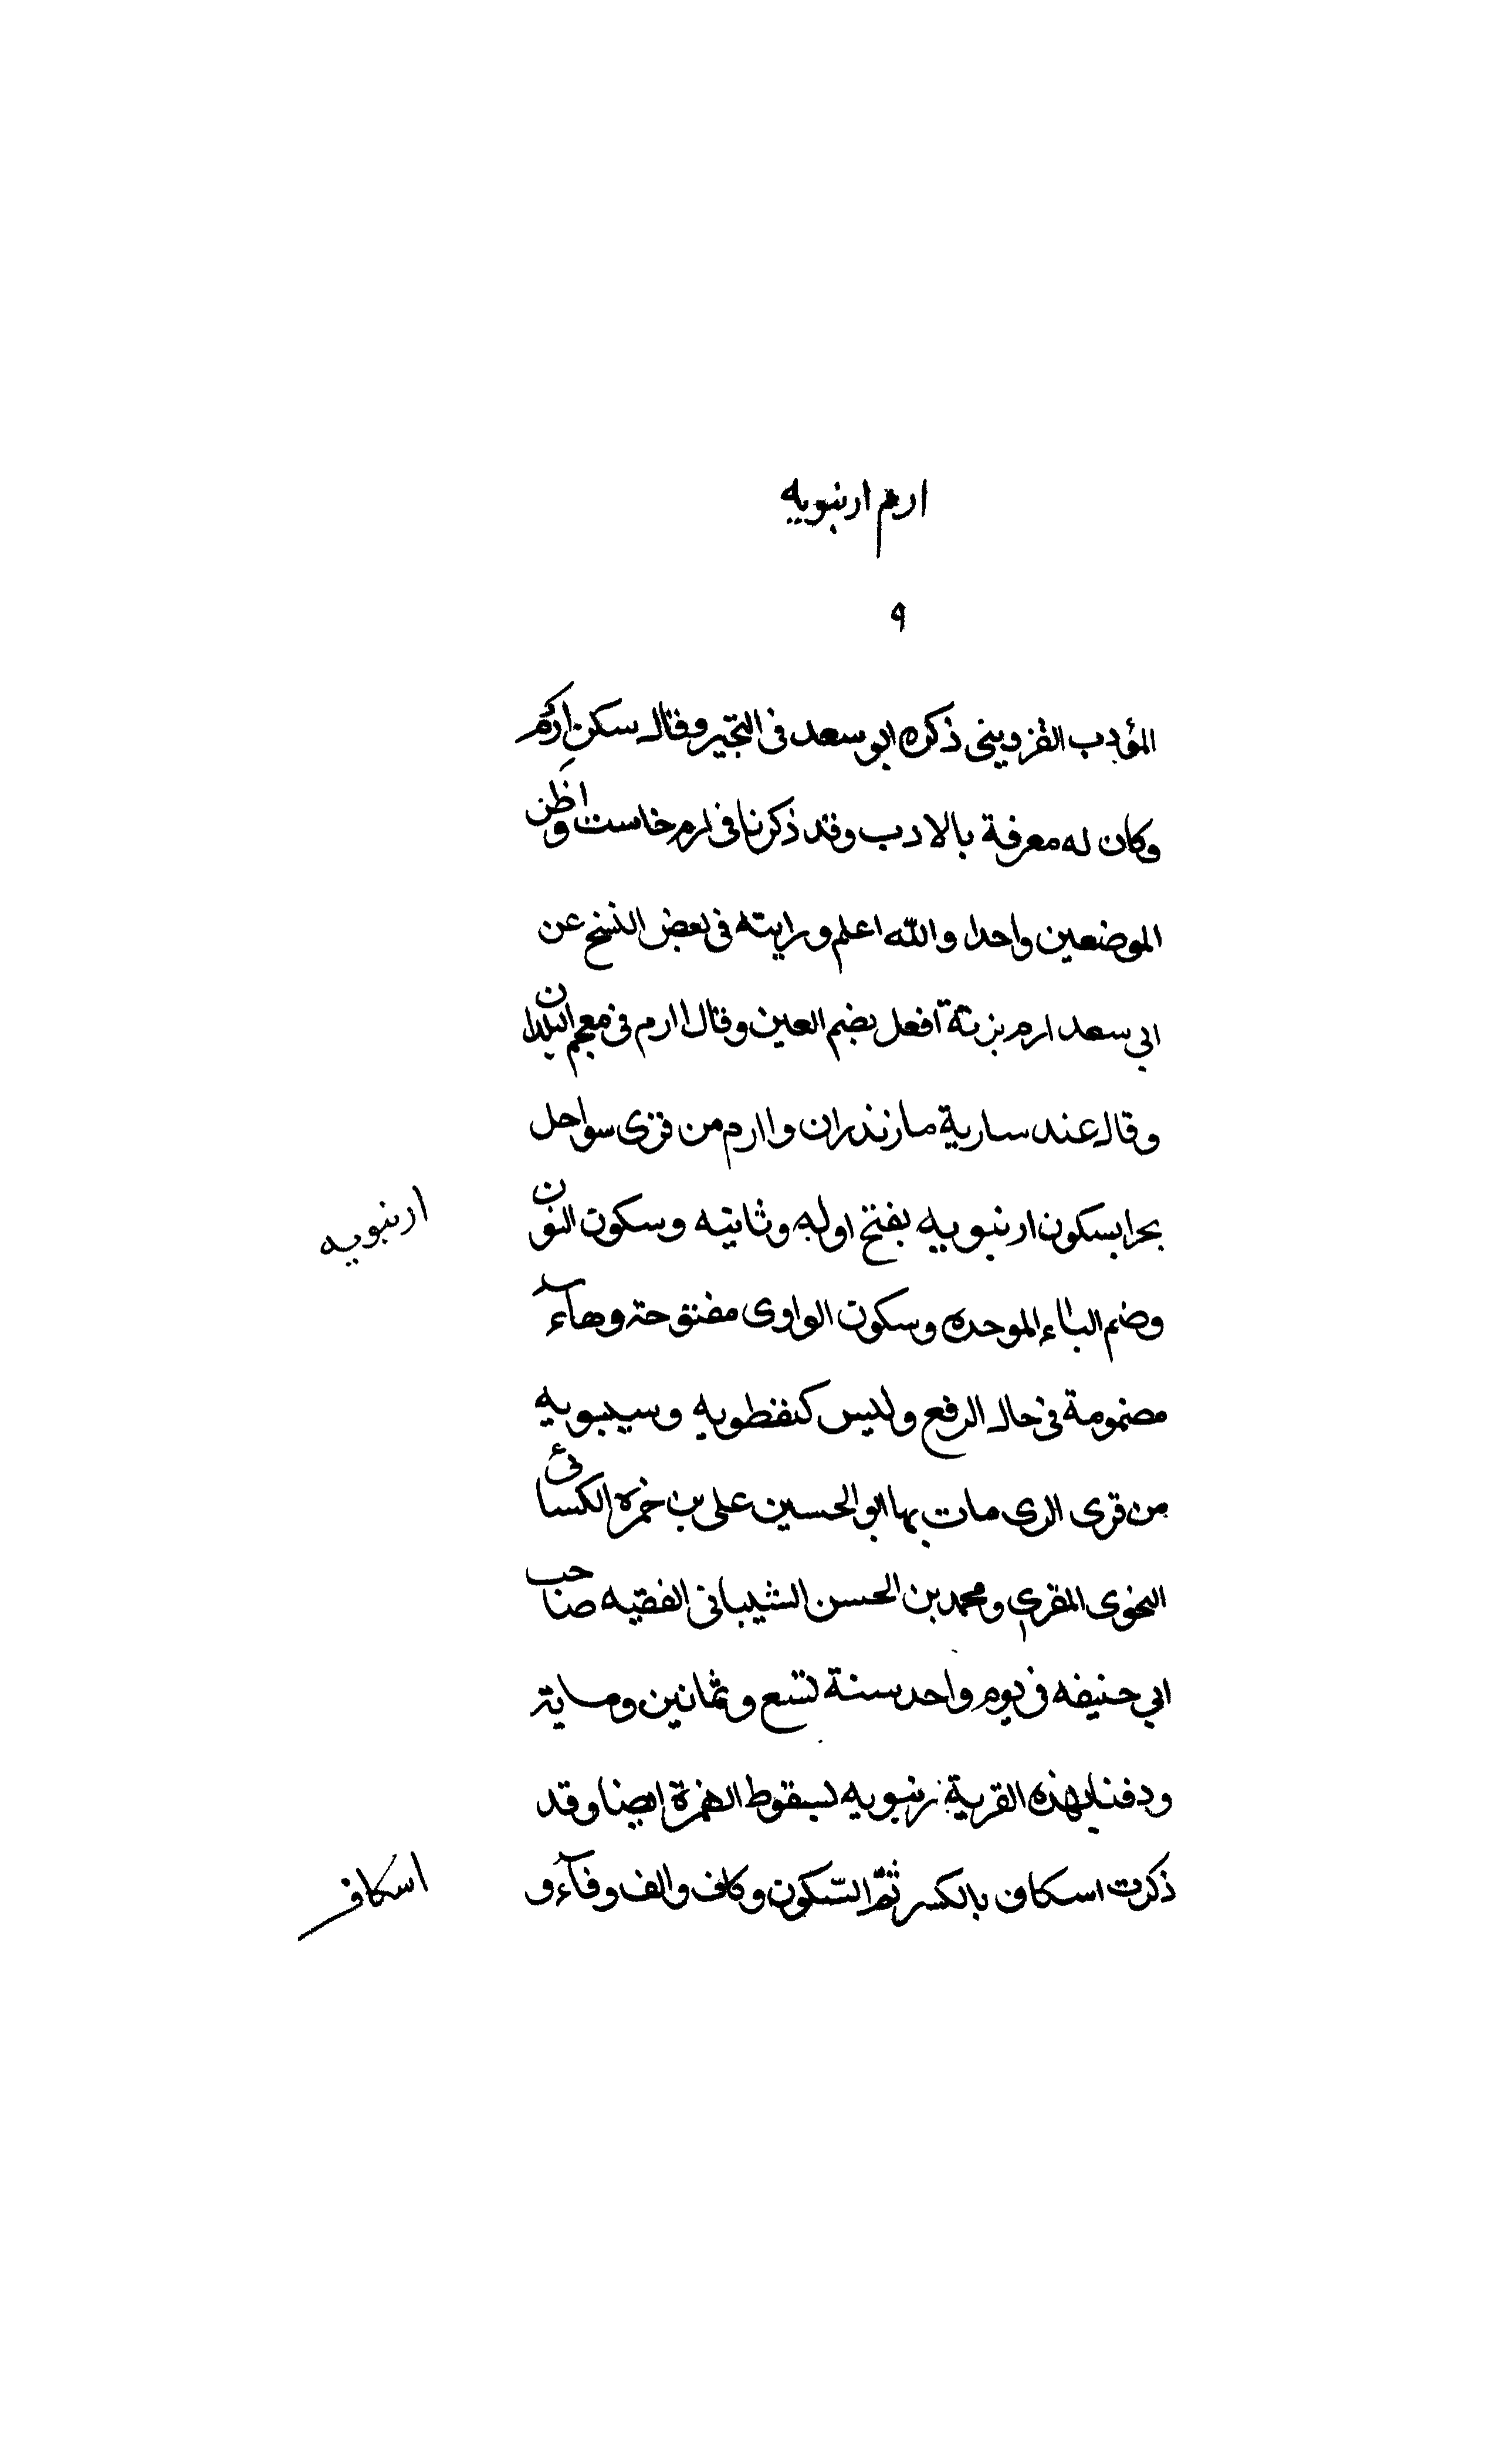 ارم ارنبويه
٩
المؤدب القزويني ذكره ابو سعد فى التحبير وقال سكن اِرَم
وكان له معرفة بالادب وقد ذكرنا فى ارم خاست واظن
الموضعين واحدا والله اعلم ورايته فى بعض النسخ عن
ابي سعد ارم بزنة افعل بضم العين وقال اارم فى معجم البلدان
وقال عند سارية مازندران واارم من قرى سواحل
بحر ابسكون ارنبويه بفتح اوله وثانيه وسكون النون
وضم الباء الموحده وسكون الواو ى مفتوحة وهآء
مضمومة فى حال الرفع وليس كنفطويه وسيبويه
من قرى الرى مات بها ابو الحسين على بن حمزه الكسائى
النحوى المقرى ومحمد بن الحسن الشيبانى الفقيه صاحب
ابي حنيفه فى يوم واحد سنة تسع وثمانين وماية
ودفنا بهذه القرية رنبويه بسقوط الهمزة ايضا وقد
ذكرت اسكاف بالكسر ثمّ السّكون وكاف والف وفآء و
ارنبويه
اسكاف